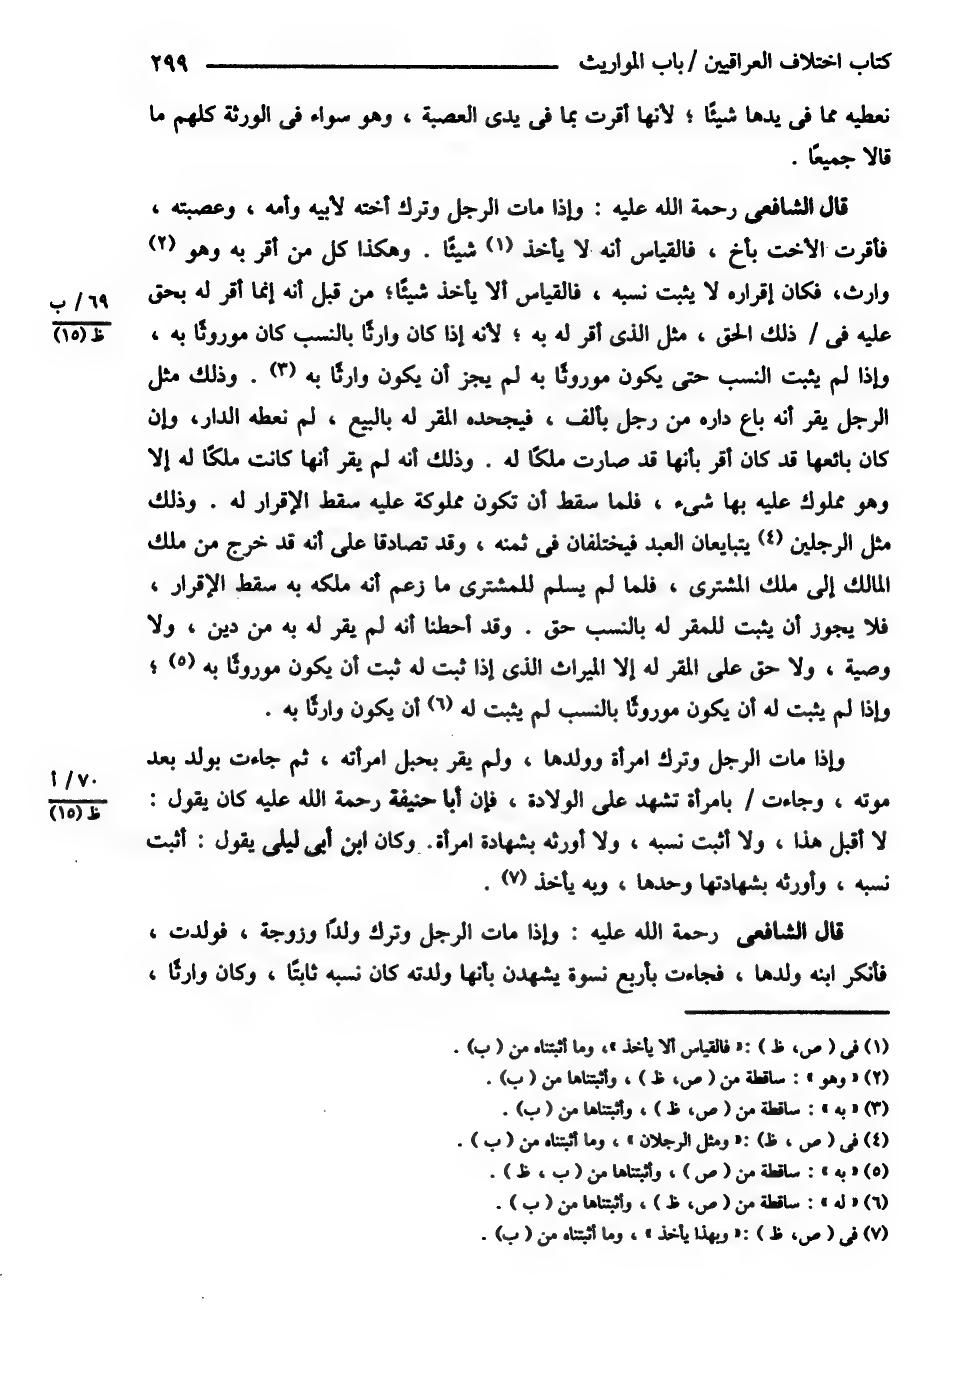 كتاب اختلاف العراقيين / باب المواريث ـــــــــــــــــــ ٢٩٩
نعطيه مما فى يدها شيئًا ؛ لأنها أقرت بما فى يدى العصبة ، وهو سواء فى الورثة كلهم ما
قالا جميعًا .
قال الشافعى رحمة الله عليه : وإذا مات الرجل وترك أخته لأبيه وأمه ، وعصبته ،
فأقرت الأخت بأخ ، فالقياس أنه لا يأخذ (١) شيئًا . وهكذا كل من أقر به وهو (٢)
وارث، فكان إقراره لا يثبت نسبه ، فالقياس ألا يأخذ شيئًا؛ من قبل أنه إنما أقر له بحق
٦٩/ ب
عليه فى / ذلك الحق ، مثل الذى أقر له به ؛ لأنه إذا كان وارثًا بالنسب كان موروثًا به ،
ظ (١٥)
وإذا لم يثبت النسب حتى يكون موروثًا به لم يجز أن يكون وارثًا به (٣) . وذلك مثل
الرجل يقر أنه باع داره من رجل بألف ، فيجحده المقر له بالبيع ، لم نعطه الدار، وإن
كان بائعها قد كان أقر بأنها قد صارت ملكًا له . وذلك أنه لم يقر أنها كانت ملكًا له إلا
وهو مملوك عليه بها شىء ، فلما سقط أن تكون مملوكة عليه سقط الإقرار له . وذلك
مثل الرجلين (٤) يتبايعان العبد فيختلفان فى ثمنه ، وقد تصادقا على أنه قد خرج من ملك
المالك إلى ملك المشترى ، فلما لم يسلم للمشترى ما زعم أنه ملكه به سقط الإقرار ،
فلا يجوز أن يثبت للمقر له بالنسب حق . وقد أحطنا أنه لم يقر له به من دين ، ولا
وصية ، ولا حق على المقر له إلا الميراث الذى إذا ثبت له ثبت أن يكون موروثًا به (٥) ؛
وإذا لم يثبت له أن يكون موروثًا بالنسب لم يثبت له (٦) أن يكون وارثًا به .
وإذا مات الرجل وترك امرأة وولدها ، ولم يقر بحبل امرأته ، ثم جاءت بولد بعد
٧٠/ أ
موته ، وجاءت / بامرأة تشهد على الولادة ، فإن أبا حنيفة رحمة الله عليه كان يقول :
ظ (١٥)
لا أقبل هذا ، ولا أثبت نسبه ، ولا أورثه بشهادة امرأة. وكان ابن أبى ليلى يقول : أثبت
نسبه ، وأورثه بشهادتها وحدها ، وبه يأخذ (٧) .
قال الشافعى رحمة الله عليه : وإذا مات الرجل وترك ولدًا وزوجة ، فولدت ،
فأنكر ابنه ولدها ، فجاءت بأربع نسوة يشهدن بأنها ولدته كان نسبه ثابتًا ، وكان وارثًا ،
(١) فى ( ص، ظ ) :« فالقياس ألا يأخذ »، وما أثبتناه من ( ب) .
(٢) « وهو » : ساقطة من ( ص، ظ ) ، وأثبتناها من ( ب) .
(٣) « به » : ساقطة من ( ص، ظ ) ، وأثبتناها من ( ب) .
(٤) فى ( ص ، ظ) :« ومثل الرجلان » ، وما أثبتناه من ( ب ) .
(٥) « به » : ساقطة من ( ص ) ، وأثبتناها من ( ب ، ظ ) .
(٦) « له » : ساقطة من ( ص، ظ ) ، وأثبتناها من ( ب ) .
(٧) فى ( ص، ظ ) :« وبهذا يأخذ » ، وما أثبتناه من ( ب) .